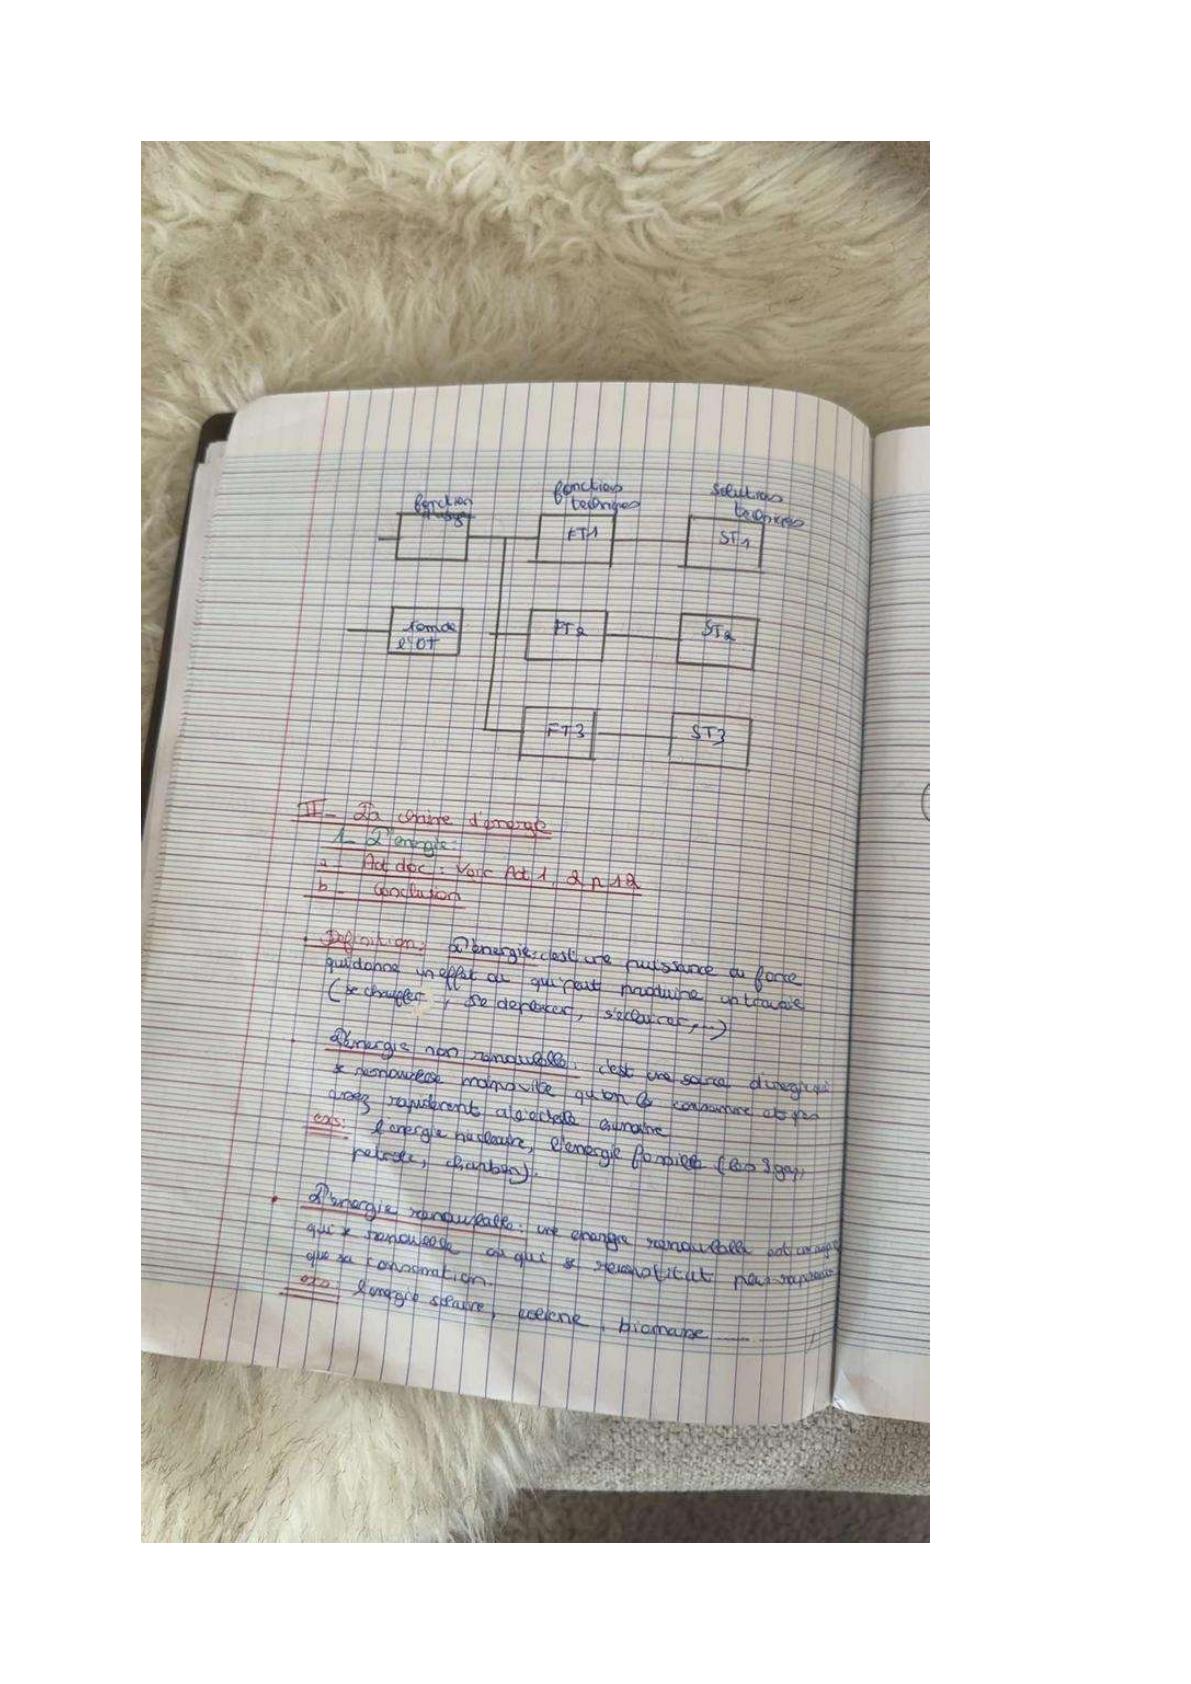 fonction
d'usage
fonctions
techniques
solutions
techniques
FT1
ST1
nom de
l'OT
FT2
ST2
FT3
ST3
II - La chaîne d'énergie
1 - L'énergie:
a - Act doc : Voir Act 1, 2 p 12
b - Conclusion
Définition: L'énergie: c'est une puissance ou force
qui donne un effet ou qui peut produire un travail
(se chauffer, se deplacer, s'eclairer, ...)
L'énergie non renouvelable: c'est une source d'énergie qui
se renouvelle moins vite qu'on la consomme et pas
assez rapidement à l'échelle humaine
exs: l'énergie nucléaire, l'énergie fossile (les 3 gaz,
petrole, charbon).
L'énergie renouvelable: une énergie renouvelable est une
qui se renouvelle ou qui se reconstitut plus rapidement
que sa consomation.
exs: l'énergie solaire, eolienne, biomasse ......